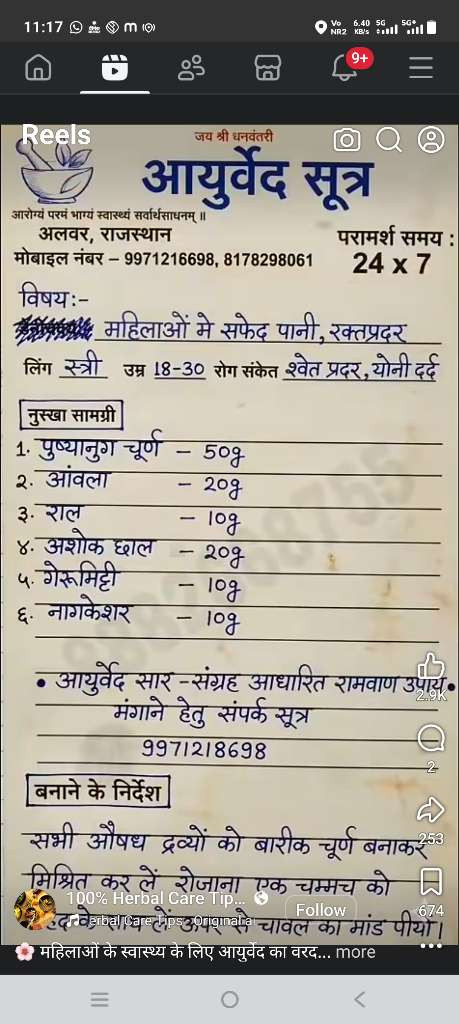 11:17
Vo NR2 6.40 KB/s 5G 5G+
9+
Reels
जय श्री धनवंतरी
आयुर्वेद सूत्र
आरोग्यं परमं भाग्यं स्वास्थ्यं सर्वार्थसाधनम् ॥
अलवर, राजस्थान
परामर्श समय :
मोबाइल नंबर – 9971216698, 8178298061
24 x 7
विषय:-
महिलाओं मे सफेद पानी, रक्तप्रदर
लिंग स्त्री उम्र 18-30 रोग संकेत श्वेत प्रदर, योनी दर्द
नुस्खा सामग्री
1. पुष्यानुग चूर्ण – 50g
२. आंवला – 20g
३. राल – 10g
४. अशोक छाल – 20g
५. गेरूमिट्टी – 10g
६. नागकेशर – 10g
• आयुर्वेद सार -संग्रह आधारित रामवाण उपाय •
2.9K
मंगाने हेतु संपर्क सूत्र
2
9971218698
बनाने के निर्देश
253
सभी औषध द्रव्यों को बारीक चूर्ण बनाकर
मिश्रित कर लें रोजाना एक चम्मच को
100% Herbal Care Tip... Follow
674
Herbal Care Tips · Original au
से चावल का मांड पीयो।
🌸 महिलाओं के स्वास्थ्य के लिए आयुर्वेद का वरद... more